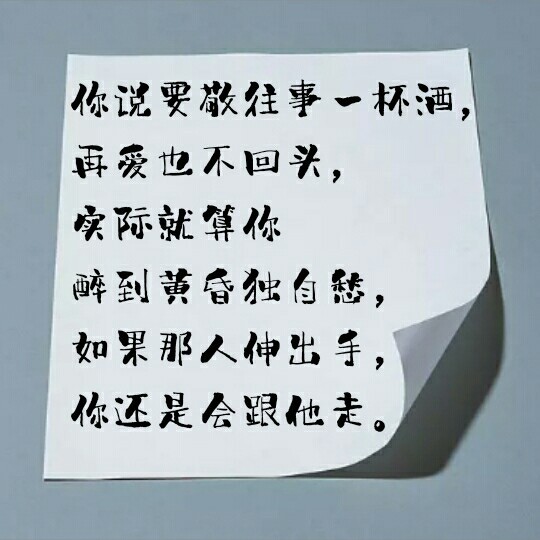 你说要敬往事一杯酒，
再爱也不回头，
实际就算你
醉到黄昏独自愁，
如果那人伸出手，
你还是会跟他走。